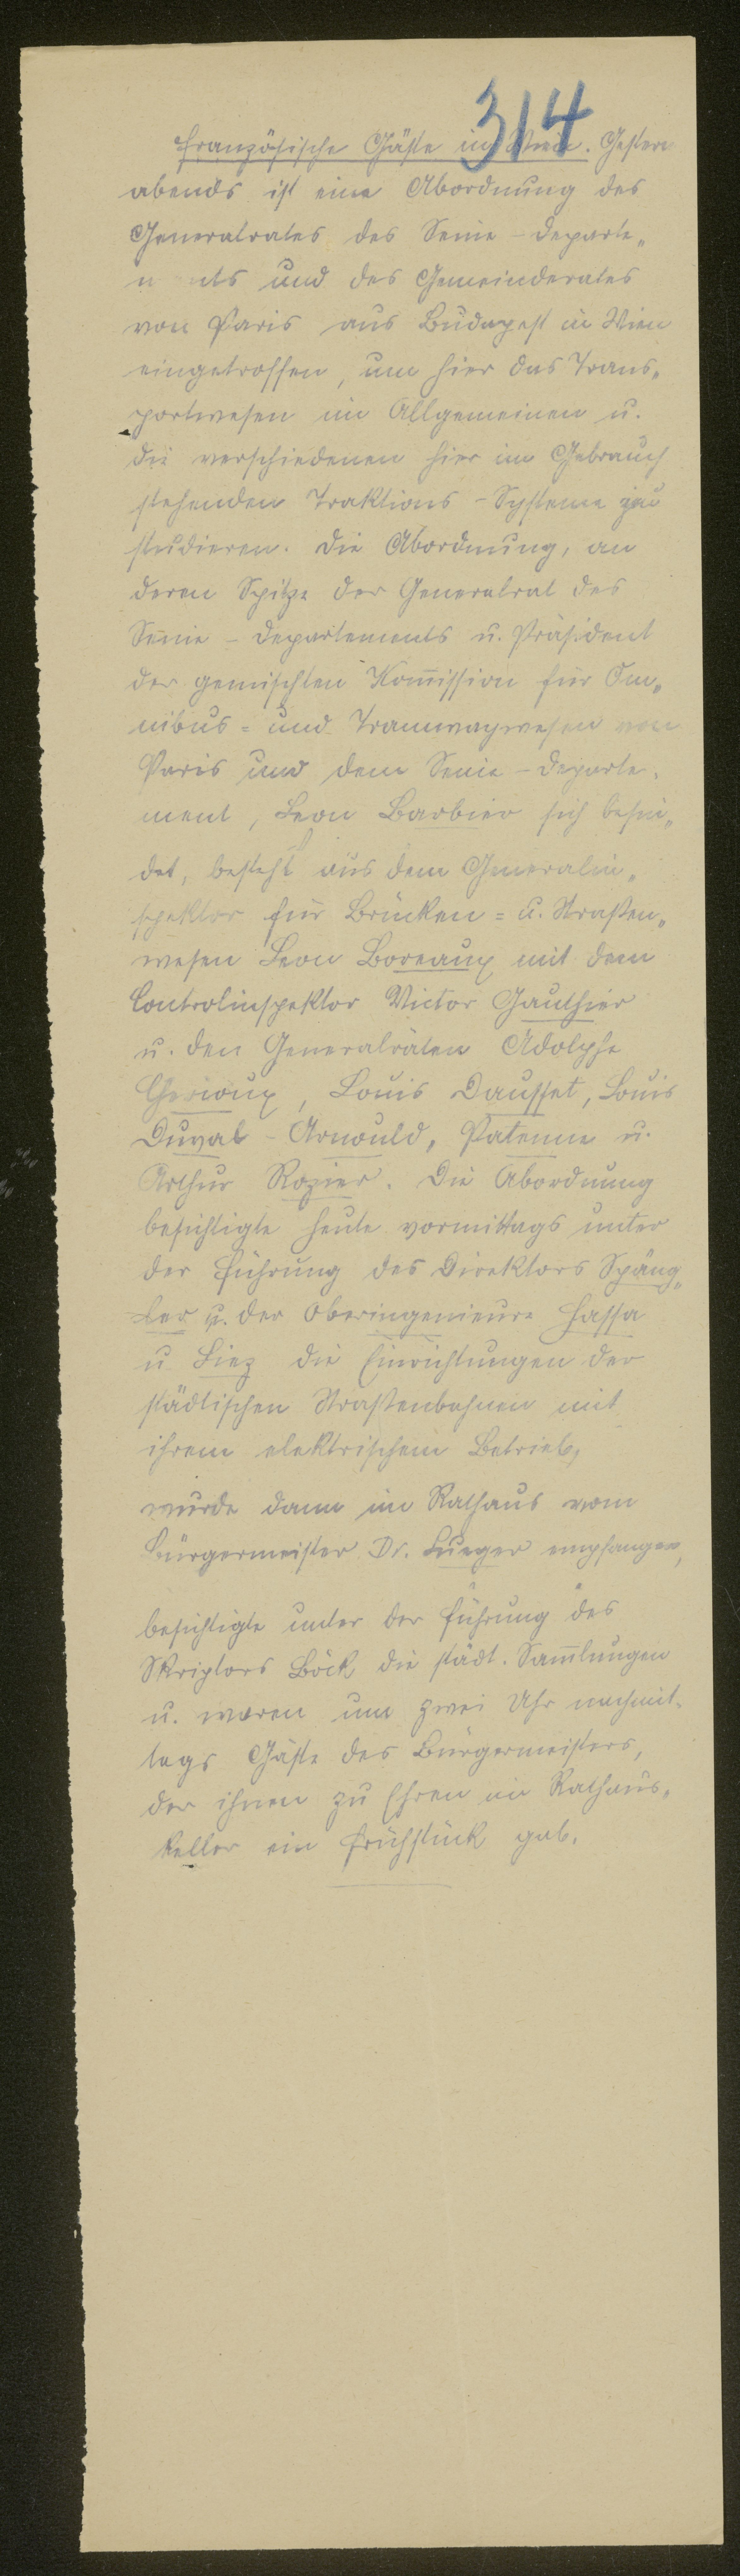 314
Französische Gäste in Wien. Gestern
abends ist eine Abordnung des
Generalrates des Seine-Departe„
ments und des Gemeinderates
von Paris aus Budapest in Wien
eingetroffen, um hier das Trans„
portwesen im Allgemeinen u.
die verschiedenen hier im Gebrauch
stehenden Traktions-Systeme zu
studieren. Die Abordnung, an
deren Spitze der Generalrat des
Seine-Departements u. Präsident
der gemischten Kom̅ission für Om„
nibus= und Tramwaywesen von
Paris und dem Seine-Departe„
ment, Leon Barbier sich befin„
det, besteht aus dem Generalin„
spektor für Brücken= u. Straßen„
wesen Leon Boreaux mit dem
Controlinspektor Victor Gauthier
u. den Generalräten Adolphe
Cherioux, Louis Dausset, Louis
Duval-Arnould, Patenne u.
Arthur Rozier. Die Abordnung
besichtigte heute vormittags unter
der Führung des Direktors Späng„
ler u. der Oberingenieure
u. die Einrichtungen der
städtischen Straßenbahnen mit
ihrem elektrischem Betrieb,
wurde dann im Rathaus vom
Bürgermeister Dr. Lueger empfangen,
besichtigte unter der Führung des
Skriptors Böck die städt. Sam̅lungen
u. waren um zwei Uhr nachmit„
tags Gäste des Bürgermeisters,
der ihnen zu Ehren im Rathaus„
keller ein Frühstück gab.